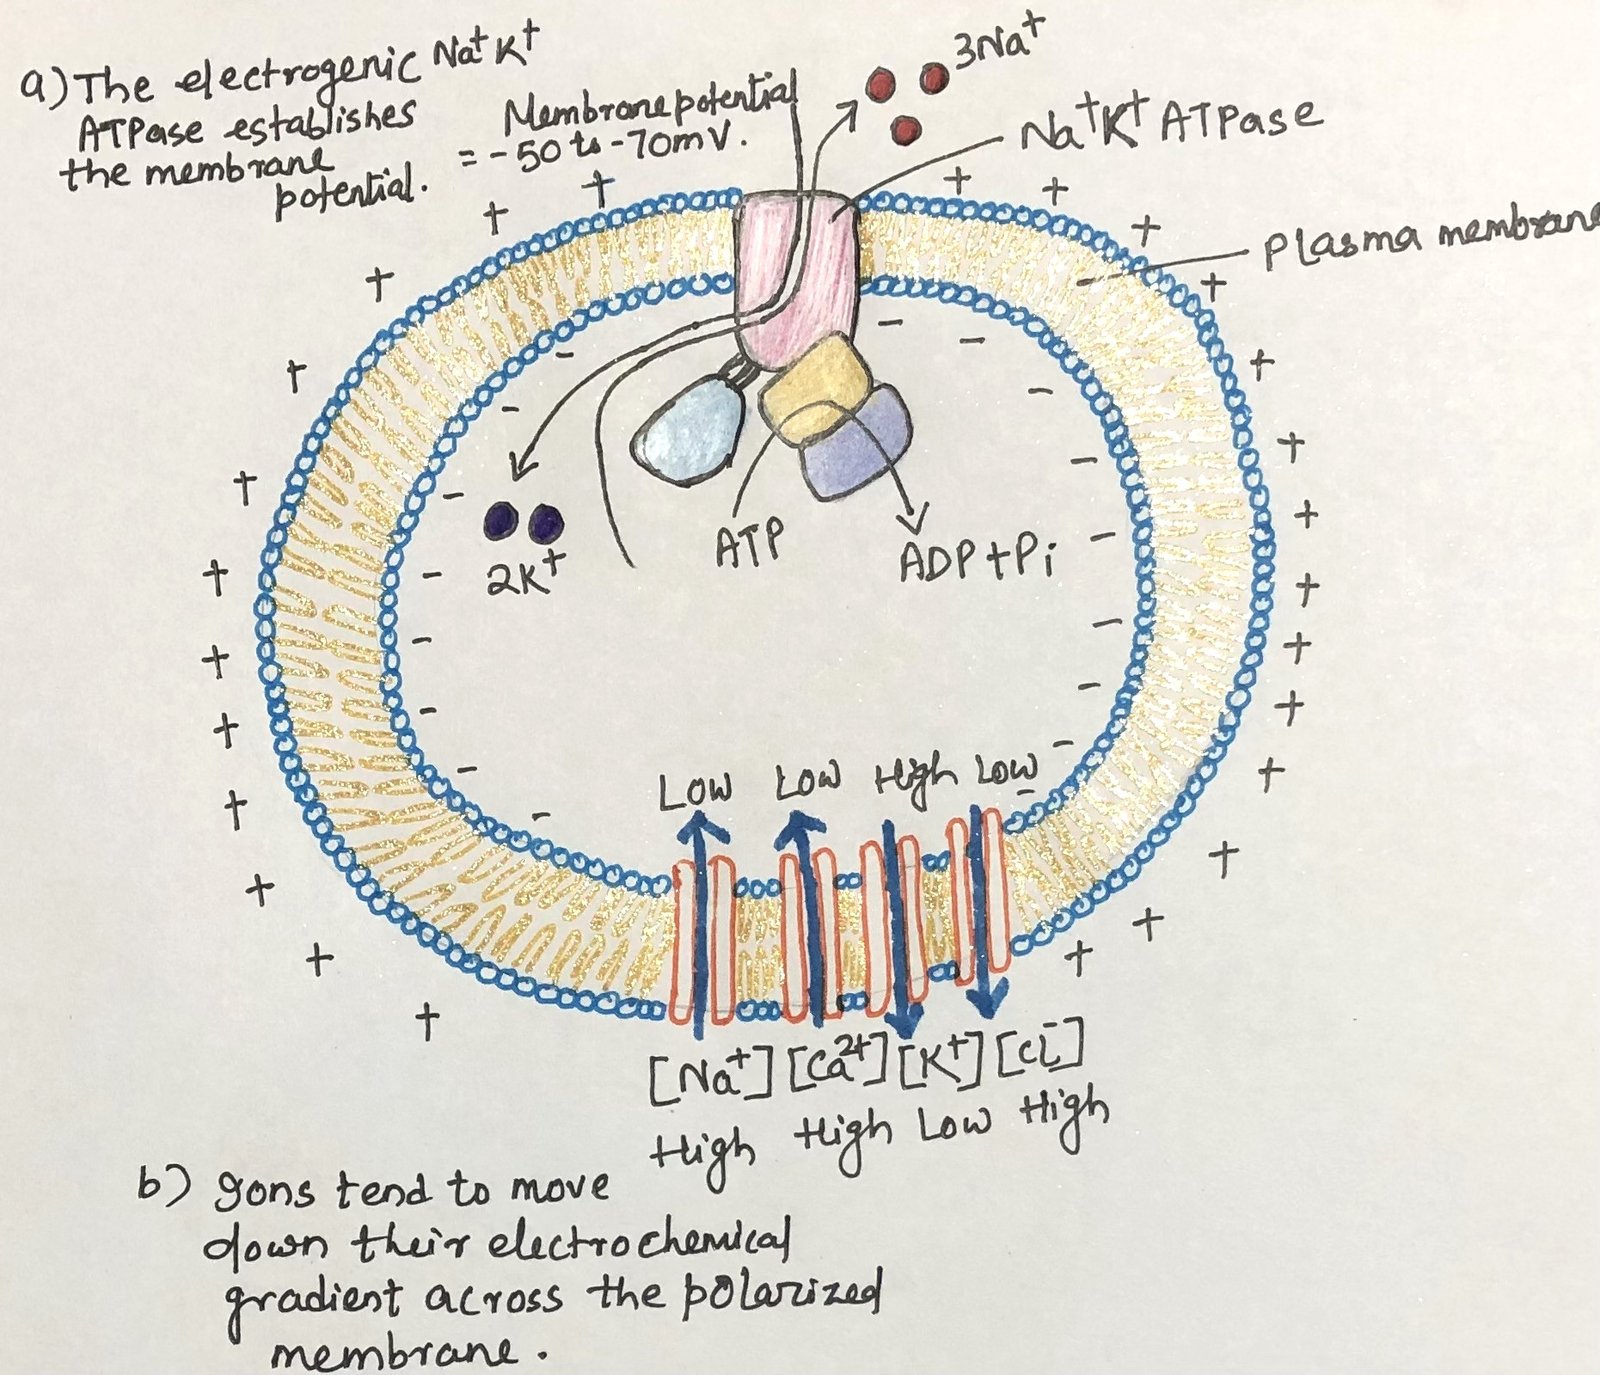 a) The electrogenic Na⁺K⁺
ATPase establishes
the membrane
potential.
Membrane potential
= -50 to -70mV.
3Na⁺
Na⁺K⁺ ATPase
plasma membrane
2K⁺
ATP
ADP + Pi
Low Low High Low
[Na⁺] [Ca²⁺] [K⁺] [Cl⁻]
High High Low High
b) Ions tend to move
down their electrochemical
gradient across the polarized
membrane.